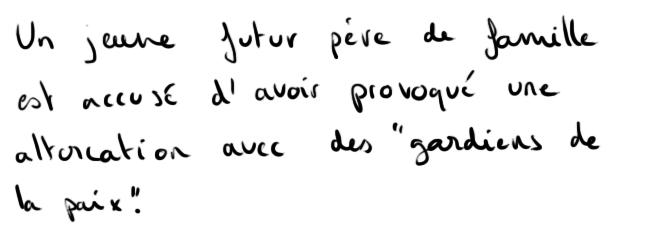 Un jeune futur père de famille
est accusé d'avoir provoqué une
altercation avec des "gardiens de
la paix".